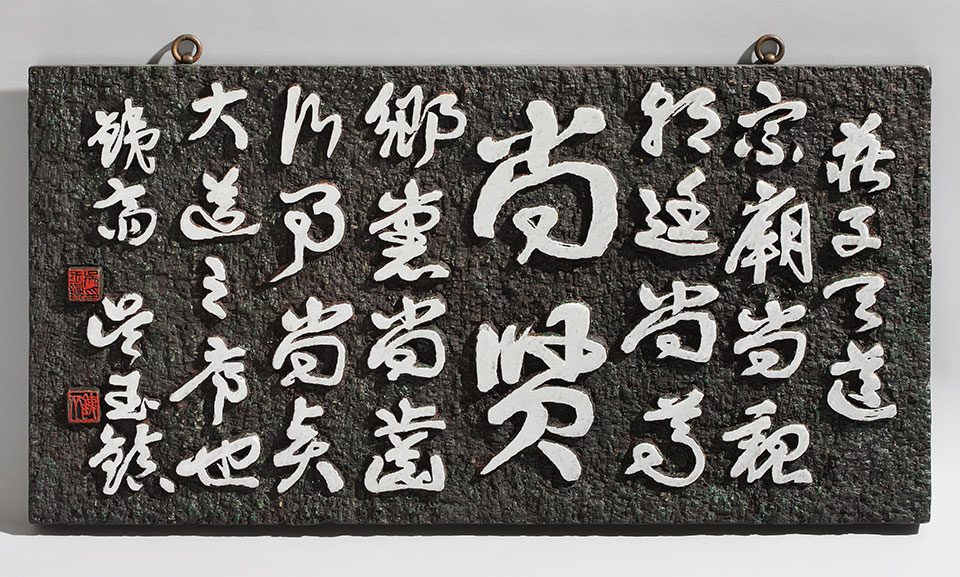 莊子天道
宗廟尚親
朝廷尚尊
尚賢
鄉黨尚齒
行事尚賢
大道之序也
鐵齋 吳玉鎮